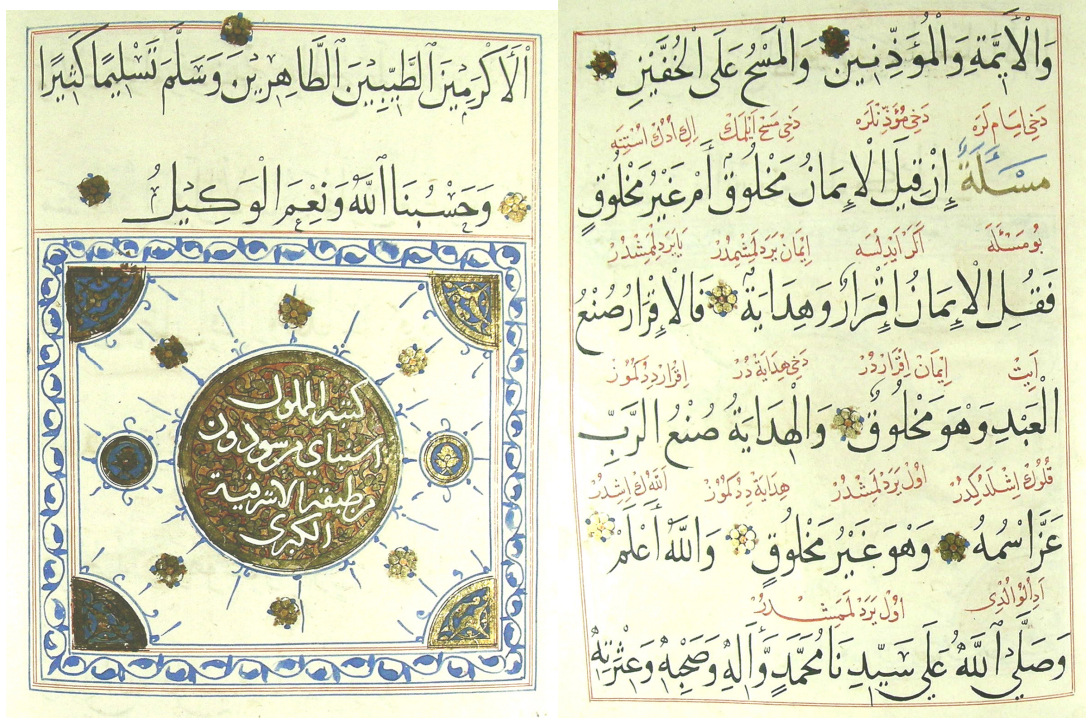 وَالْأَيِمَّةِ وَالْمُؤَذِّنِينَ وَالْمَسْحُ عَلَى الْخُفَّيْنِ
دخى امام لره دخى مؤذنلره دخى مسح ايلمك
مَسْأَلَةٌ إِنْ قِيلَ الْإِيمَانُ مَخْلُوقٌ أَمْ غَيْرُ مَخْلُوقٍ
بو مسئله اكر ايدلسه ايمان يردلمشمدر يا يردلممشدر
فَقُلِ الْإِيمَانُ إِقْرَارٌ وَهِدَايَةٌ فَالْإِقْرَارُ صُنْعُ
ايت ايمان اقراردر دخى هدايةدر اقرار ددكموز
الْعَبْدِ وَهُوَ مَخْلُوقٌ وَالْهِدَايَةُ صُنْعُ الرَّبِّ
قلوك اشلدكدر اول يردلمشدر هداية ددكموز اللهك اشدر
عَزَّ اسْمُهُ وَهُوَ غَيْرُ مَخْلُوقٍ وَاللّٰهُ أَعْلَمُ
اول يردلممشدر
وَصَلَّى اللّٰهُ عَلَى سَيِّدِنَا مُحَمَّدٍ وَآلِهِ وَصَحْبِهِ وَعِتْرَتِهِ
الْأَكْرَمِينَ الطَّيِّبِينَ الطَّاهِرِينَ وَسَلَّمَ تَسْلِيمًا كَثِيرًا
وَحَسْبُنَا اللّٰهُ وَنِعْمَ الْوَكِيلُ
كتبه المملوك
اسنباي من سودون
من طبقة الاشرفية
الكبرى